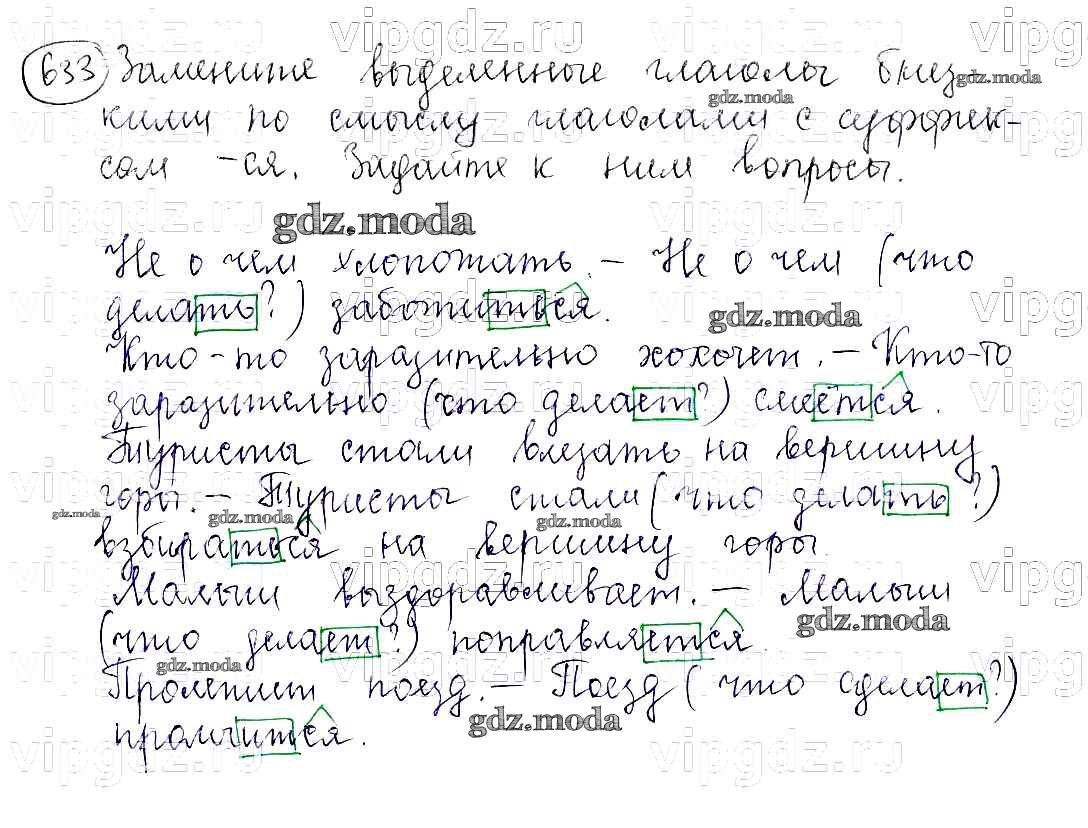 633 Замените выделенные глаголы близ-
кими по смыслу глаголами с суффик-
сом -ся. Задайте к ним вопросы.
gdz.moda
Не о чем хлопотать. - Не о чем (что
делать?) заботиться.
Кто-то заразительно хохочет. - Кто-то
заразительно (что делает?) смеётся.
Туристы стали влезать на вершину
горы. - Туристы стали (что делать?)
взбираться на вершину горы.
Малыш выздоравливает. - Малыш
(что делает?) поправляется.
Пролетит поезд. - Поезд (что сделает?)
промчится.